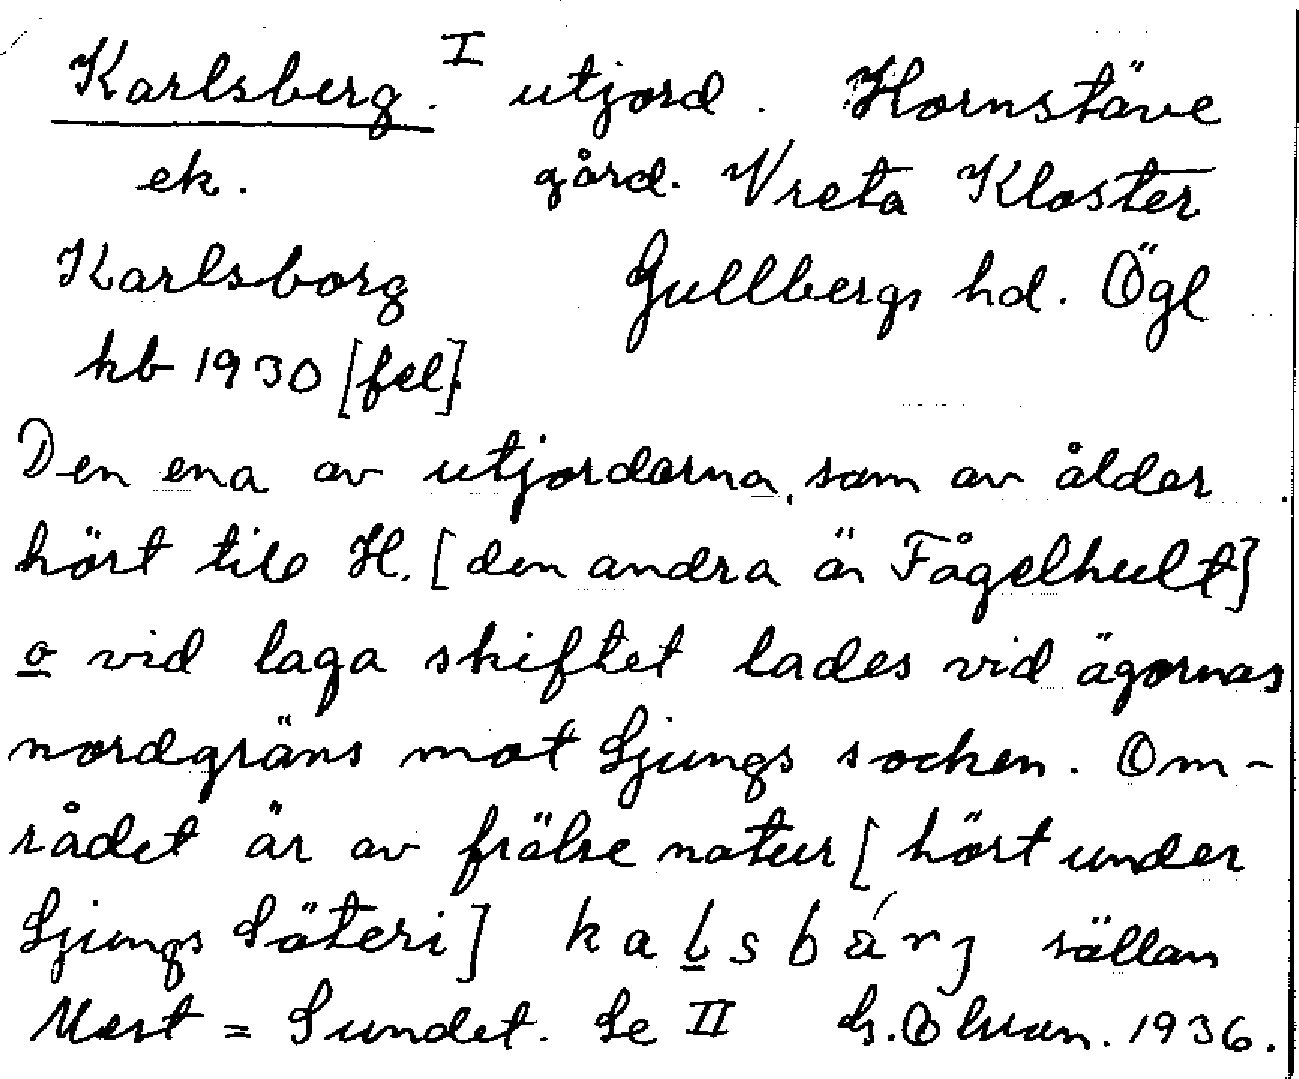 Karlsberg. I utjord. Hornstäve
ek. gård. Vreta Kloster
Karlsborg Gullbergs hd. Ögl
kb 1930 [fel].
Den ena av utjordarna, som av ålder
hört till H. [den andra är Fågelhult]
o vid laga skiftet lades vid ägornas
nordgräns mot Ljungs socken. Om-
rådet är av frälse natur [hört under
Ljungs Säteri] sällan
Mest = Sundet. Se II 1936.